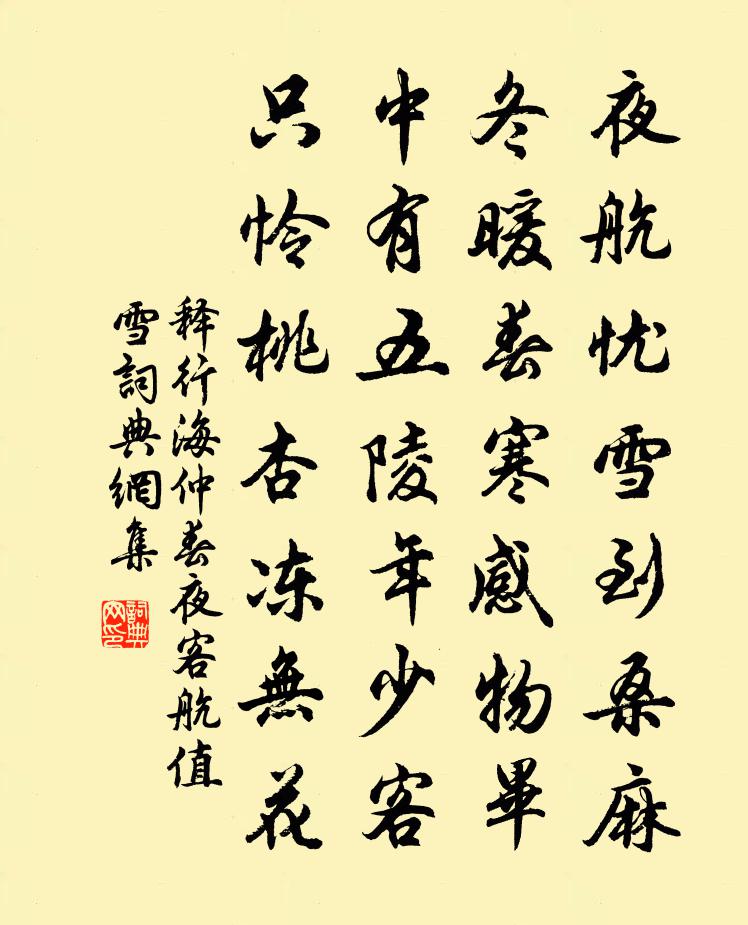 夜航忧雪到桑麻
冬暖春寒感物畢
中有五陵年少客
只怜桃杏冻無花
释行海仲春夜客航值
雪詞典網集
詞典
网印